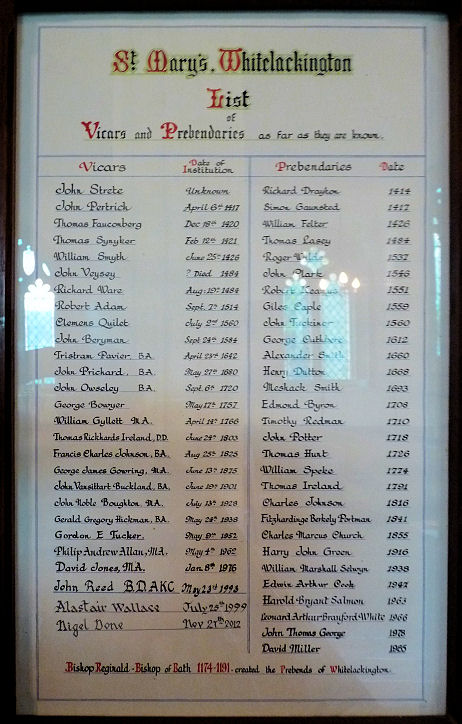 St Mary's, Whitelackington
List
of
Vicars and Prebendaries as far as they are known.
Vicars Date of Institution
John Strete Unknown
John Pertrich April 6th 1417
Thomas Fauconberg Dec 18th 1420
Thomas Synyker Feb 12th 1421
William Smyth June 25th 1426
John Veysey ? Died 1484
Richard Ware Aug: 19th 1484
Robert Adam Sept. 7th 1514
Clemens Quilet July 2nd 1560
John Beryman Sept 24th 1584
Tristram Pavier. B.A. April 23rd 1642
John Prichard, B.A. May 27th 1680
John Owseley B.A. Sept. 6th 1720
George Bowyer May 17th 1757
William Gyllett M.A. April 14th 1766
Thomas Rickhards Ireland, D.D. June 24th 1803
Francis Charles Johnson, B.A. Aug 25th 1825
George James Gowring, M.A. June 13th 1875
John Vansittart Buckland, B.A. June 19th 1901
John Noble Boughton, M.A. July 13th 1928
Gerald Gregory Hickman, B.A. May 24th 1938
Gordon E Tucker. May 9th 1952
Philip Andrew Allan, M.A. May 4th 1962
David Jones, M.A. Jan 8th 1976
John Reed B.D. AKC May 23rd 1993
Alastair Wallace July 25th 1999
Nigel Done Nov 27th 2012
Prebendaries Date
Richard Drayton 1414
Simon Gaunsted 1417
William Felter 1426
Thomas Lasey 1484
Roger 1537
John Clark 1546
Robert 1551
Giles Caple 1559
John Tuckiner 1560
George Cuthbere 1612
Alexander Smith 1660
Henry Dutton 1668
Meshack Smith 1693
Edmond Byron 1708
Timothy Redman 1710
John Potter 1718
Thomas Hunt 1726
William Speke 1774
Thomas Ireland 1791
Charles Johnson 1816
Fitzhardinge Berkely Portman 1841
Charles Marcus Church 1855
Harry John Green 1916
William Marshall Selwyn 1938
Edwin Arthur Cook 1947
Harold Bryant Salmon 1963
Leonard Arthur Brayford White 1966
John Thomas George 1978
David Miller 1985
Bishop Reginald - Bishop of Bath 1174-1191 - created the Prebends of Whitelackington